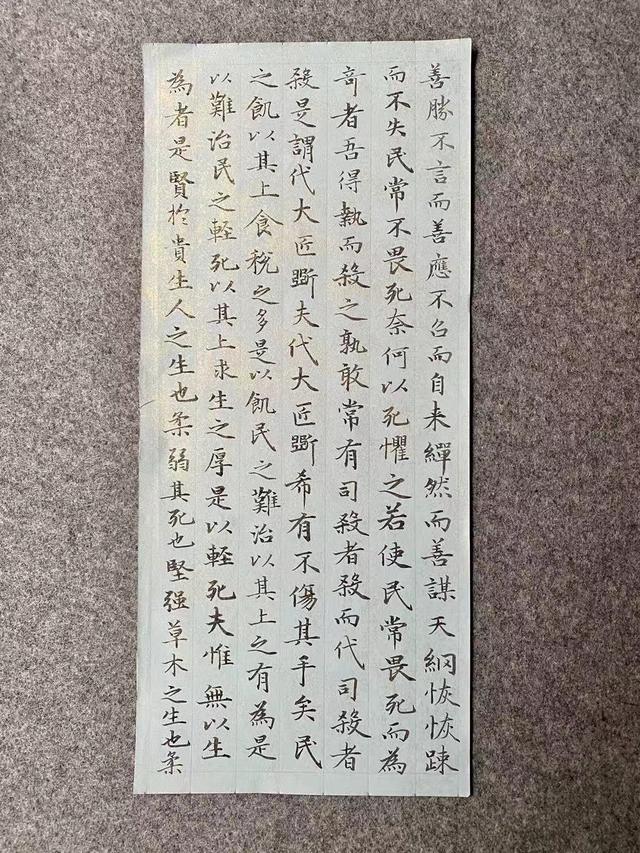 善勝不言而善應不召而自来繟然而善謀天網恢恢踈
而不失民常不畏死奈何以死懼之若使民常畏死而為
竒者吾得執而殺之孰敢常有司殺者殺而代司殺者
殺是謂代大匠斲夫代大匠斲希有不傷其手矣民
之飢以其上食稅之多是以飢民之難治以其上之有為是
以難治民之輕死以其上求生之厚是以輕死夫惟無以生
為者是賢於貴生人之生也柔弱其死也堅强草木之生也柔